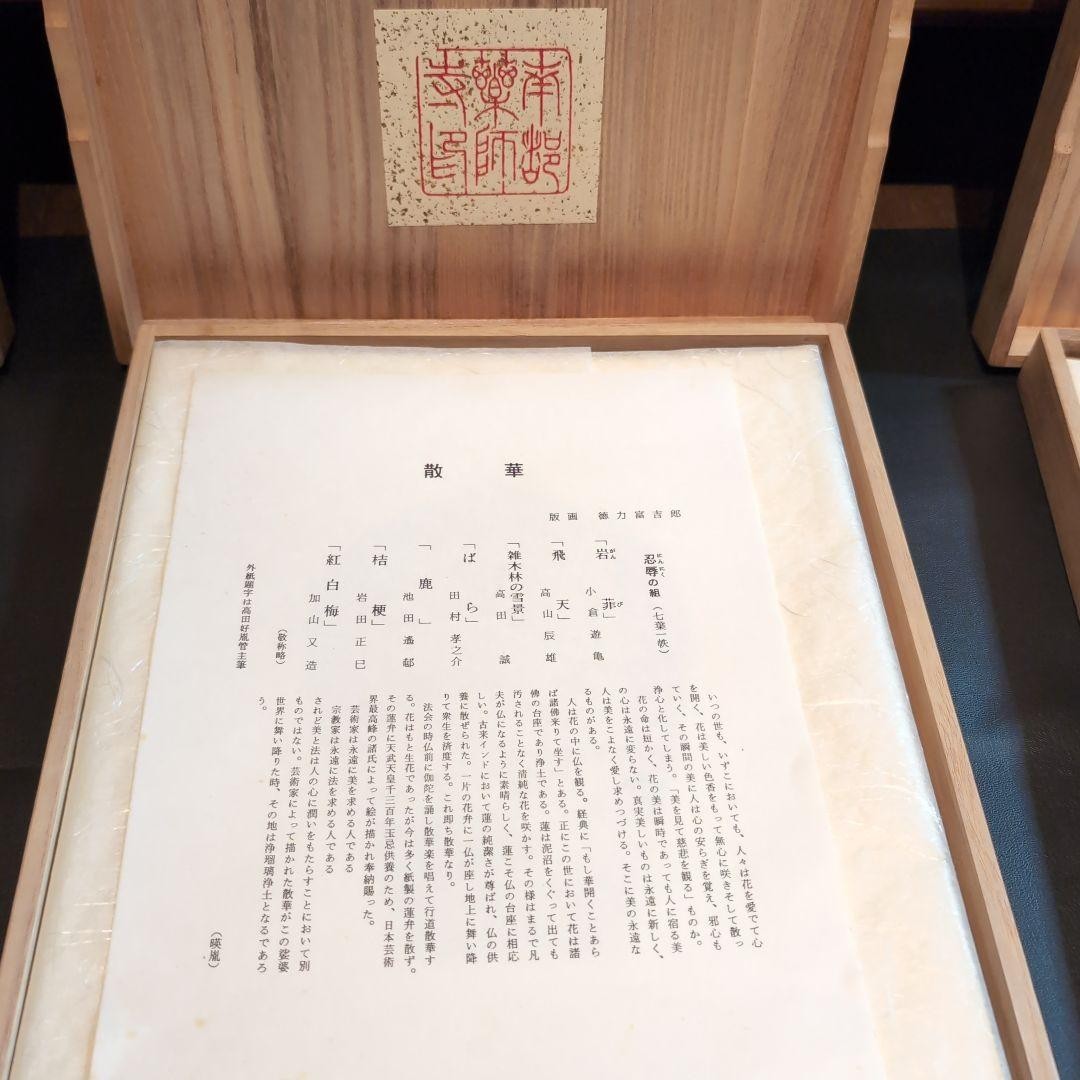 南都
薬師
寺印
散華
版画 徳力富吉郎
忍辱の組（七葉一帙）
にんにく
「岩菲」
がんぴ
小倉遊亀
「飛天」
高山辰雄
「雑木林の雪景」
高田誠
「ばら」
田村孝之介
「鹿」
池田遙邨
「桔梗」
岩田正巳
「紅白梅」
加山又造
（敬称略）
外紙題字は高田好胤管主筆
いつの世も、いずこにおいても、人々は花を愛でて心
を開く、花は美しい色香をもって無心に咲きそして散っ
ていく、その瞬間の美に人は心の安らぎを覚え、邪心も
浄心と化してしまう。「美を見て慈悲を観る」ものか。
花の命は短かく、花の美は瞬時であっても人に宿る美
の心は永遠に変らない。真実美しいものは永遠に新しく、
人は美をこよなく愛し求めつづける。そこに美の永遠な
るものがある。
人は花の中に仏を観る。経典に「もし華開くことあら
ば諸佛来りて坐す」とある。正にこの世において花は諸
佛の台座であり浄土である。蓮は泥沼をくぐって出ても
汚されることなく清純な花を咲かす。その様はまるで凡
夫が仏になるように素晴らしく、蓮こそ仏の台座に相応
しい。古来インドにおいて蓮の純潔さが尊ばれ、仏の供
養に散ぜられた。一片の花弁に一仏が座し地上に舞い降
りて衆生を済度する。これ即ち散華なり。
法会の時仏前に伽陀を誦し散華楽を唱えて行道散華す
る。花はもと生花であったが今は多く紙製の蓮弁を散ず。
その蓮弁に天武天皇千三百年玉忌供養のため、日本芸術
界最高峰の諸氏によって絵が描かれ奉納賜った。
芸術家は永遠に美を求める人である
宗教家は永遠に法を求める人である
されど美と法は人の心に潤いをもたらすことにおいて別
ものではない。芸術家によって描かれた散華がこの娑婆
世界に舞い降りた時、その地は浄瑠璃浄土となるであろ
う。
（暎胤）